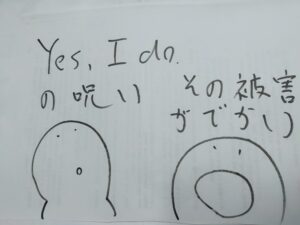 Yes, I do.
の呪い
その被害
がでかい